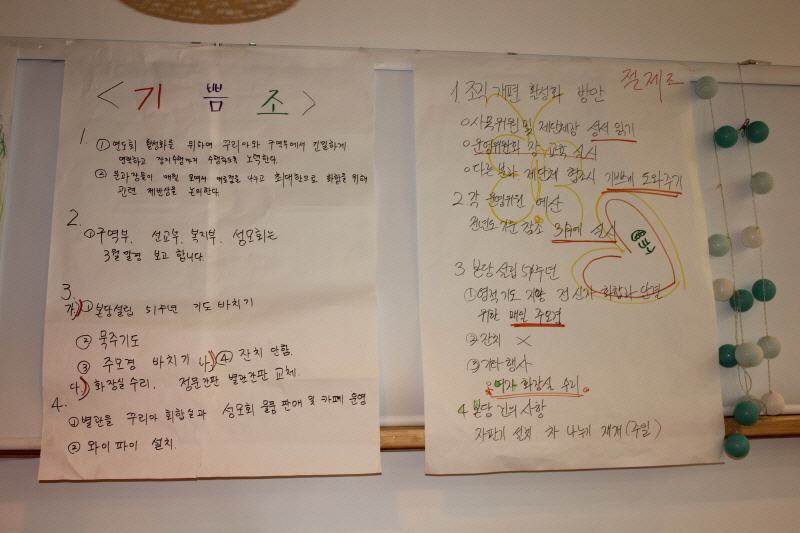 < 기 쁨 조 >
1.
① 연도회 활성화를 위하여 꾸리아와 구역부에서 긴밀하게
연락하고 장지수행까지 수행하도록 노력한다.
② 분과장들이 매월 모여서 나누고 최대한으로 화합을 위해
관련 제반상을 논의한다.
2.
① 구역부, 선교부, 복지부, 성모회는
3월 말경 보고 합니다.
3.
가) ① 본당설립 51주년 기도 바치기
② 묵주기도
③ 주모경 바치기 나) ④ 잔치 안함.
다) 화장실 수리. 정문간판 별관간판 교체.
4.
① 별관을 꾸리아 회합실과 성모회 물품 판매 및 카페 운영
② 와이파이 설치.
절제조
1. 조직 개편 활성화 방안
o 사목위원 및 제단체장 성서 읽기
o 운영위원회 장 교육 실시
o 다른 분과 제단체 협조시 기쁘게 도와주기
2. 각 운영위원 예산
전년도 기준 감소 3월에 실시
3 본당 설립 51주년
① 영적기도 지향 전 신자 화합과 단결
위한 매일 주모경
② 잔치 X
③ 기타행사
여자 화장실 수리
4 본당 건의 사항
자판기 설치 차 나누기 재개 (주일)